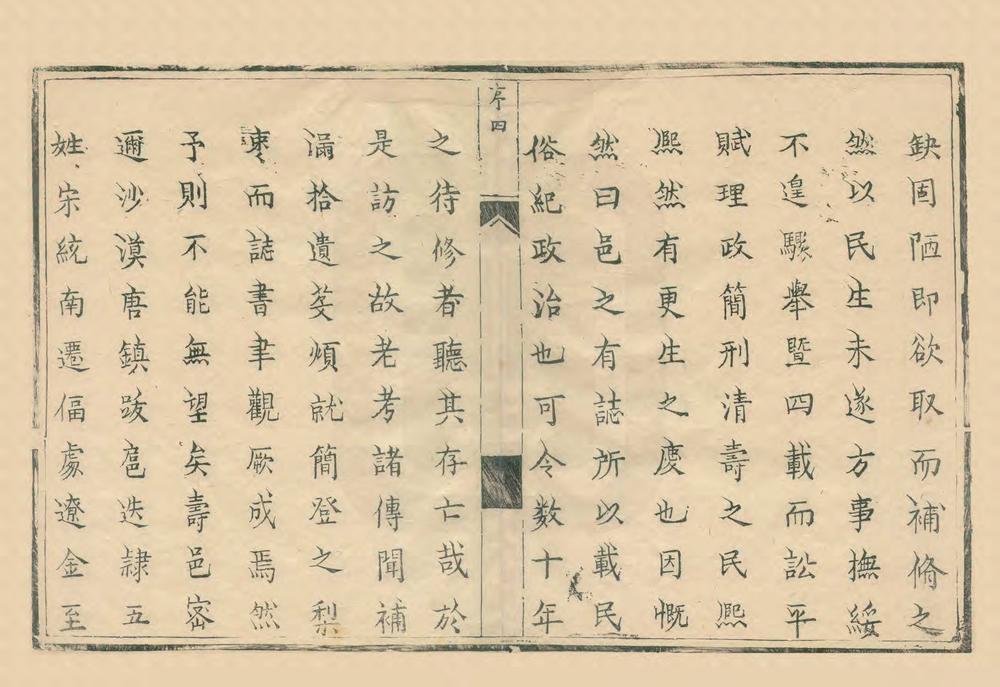 缺固陋即欲取而補脩之
然以民生未遂方事撫綏
不遑驟舉暨四載而訟平
賦理政簡刑清壽之民熈
熈然有更生之慶也因慨
然曰邑之有誌所以載民
俗紀政治也可令数十年
序四
之待修者聽其存亡哉於
是訪之故老考諸傳聞補
漏拾遺芟煩就簡登之梨
棗而誌書聿觀厥成焉然
予則不能無望矣壽邑密
邇沙漠唐鎮跋扈迭隷五
姓宋統南遷偪處遼金至